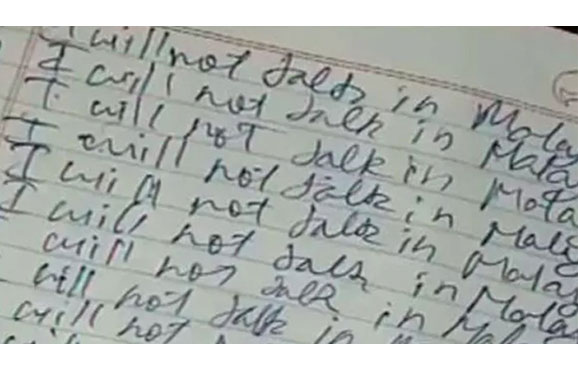 I will not talk in Mala
I will not talk in Mala
I will not talk in Mala
I will not talk in Mala
I will not talk in Malay
I will not talk in Mala
will not talk in Mala
will not talk in
will not